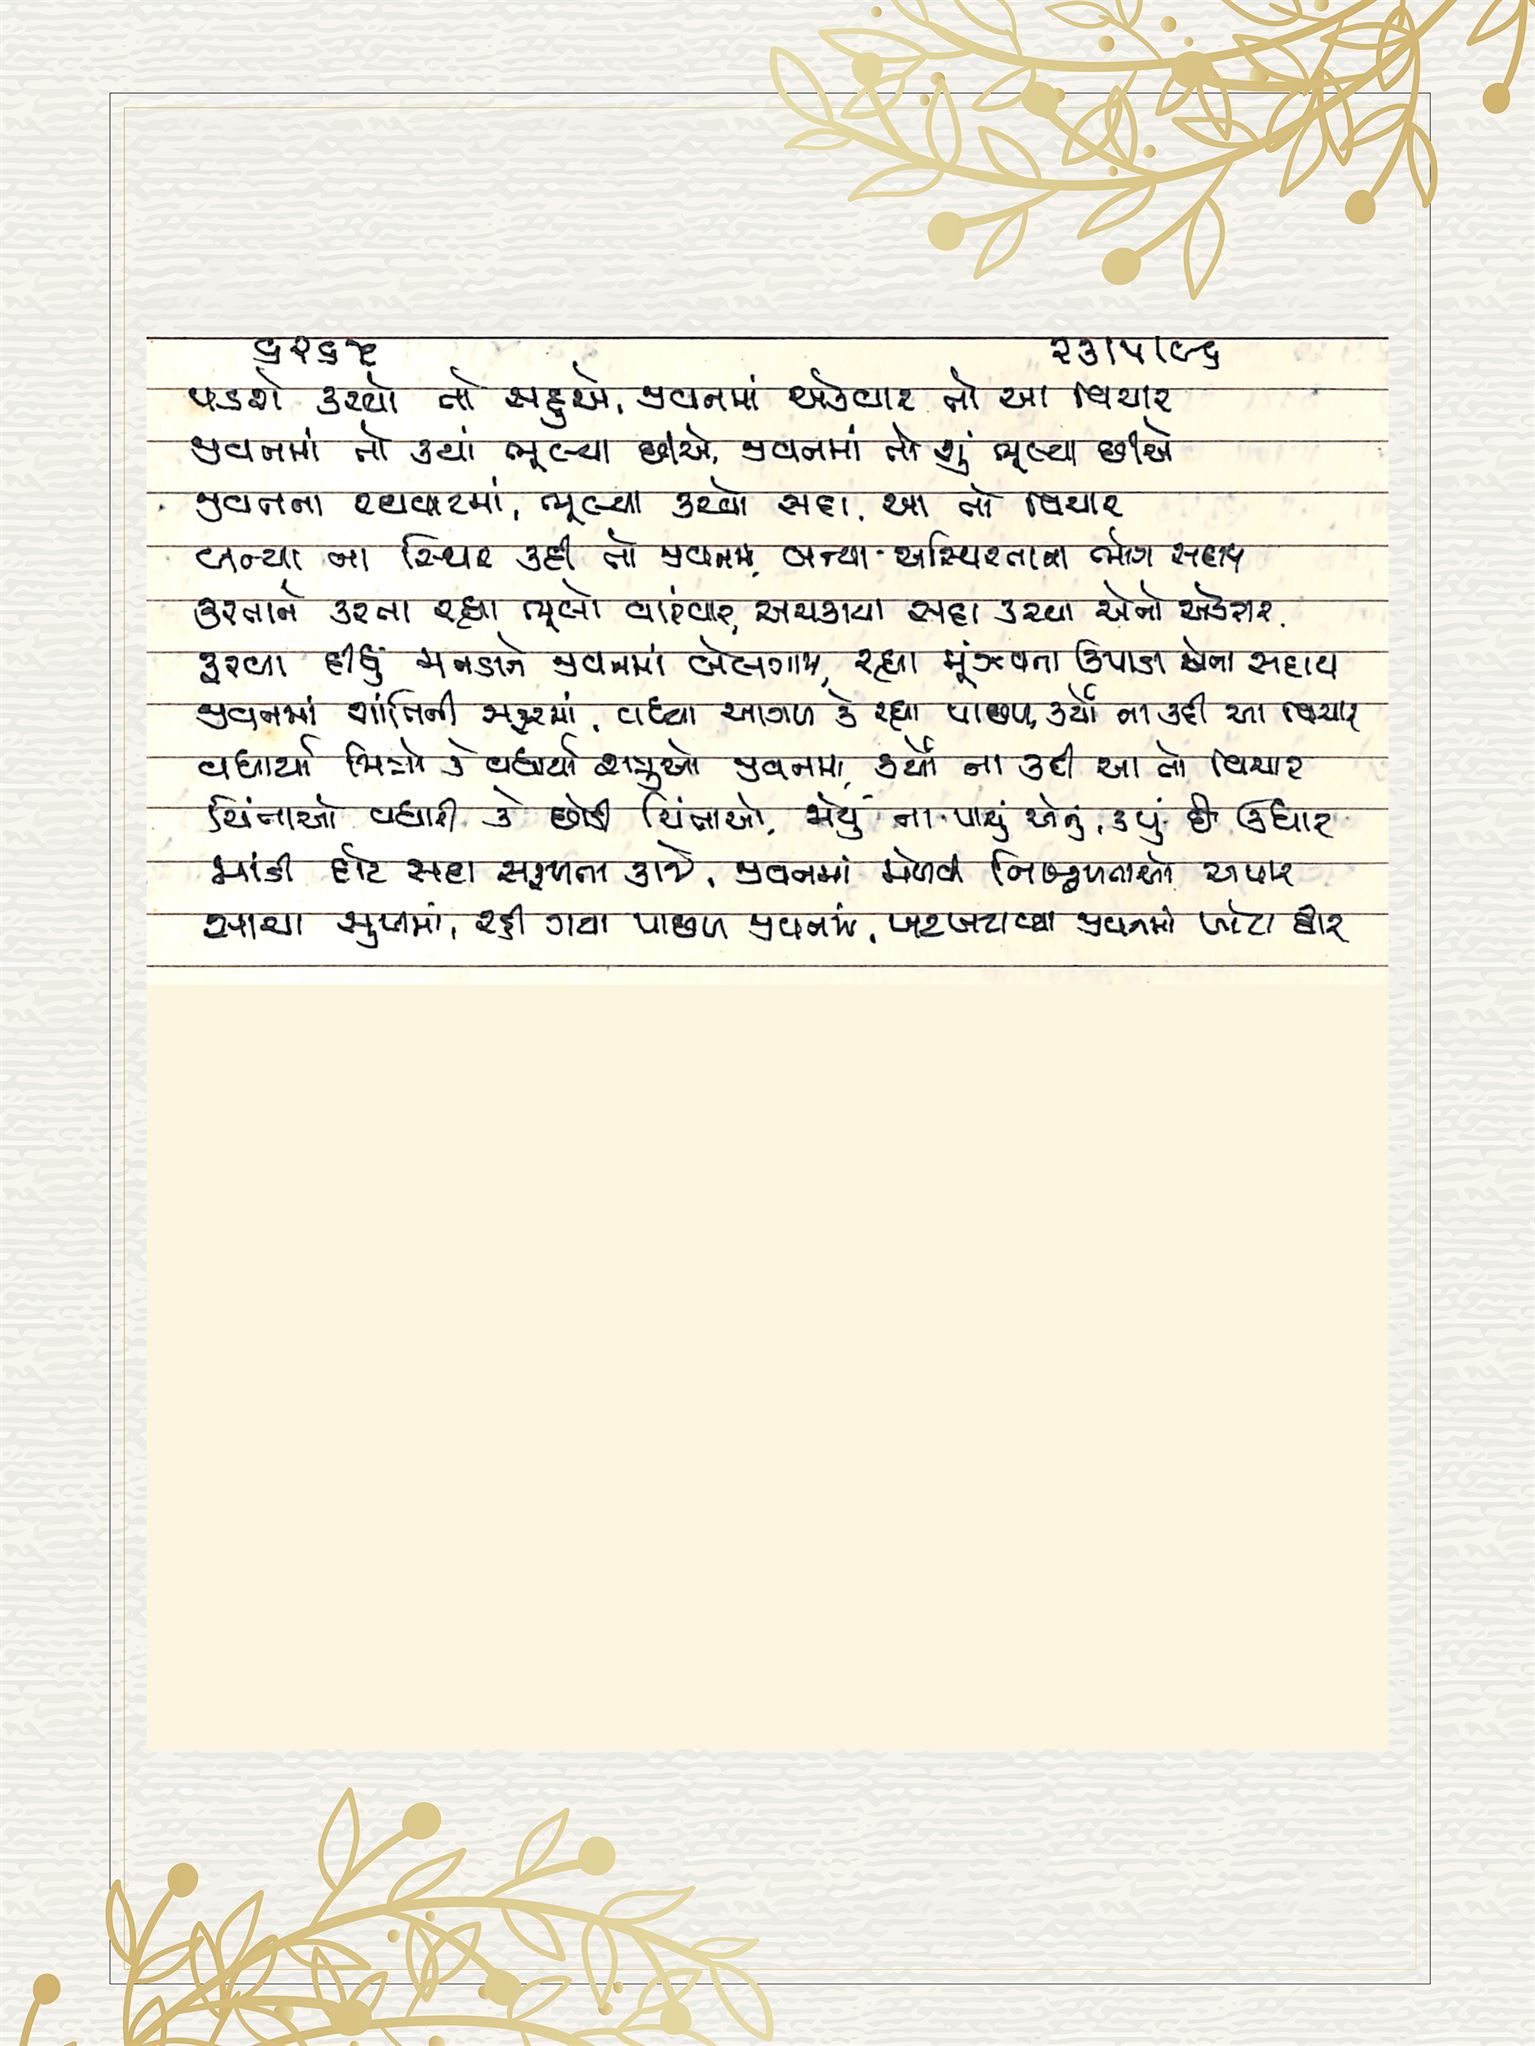 ૬૨૬૫ ૨૩/૫/૯૬
પડશે કરવો તો સહુએ, જીવનમાં એકવાર તો આ વિચાર
જીવનમાં તો ક્યાં ભૂલ્યા છીએ, જીવનમાં તો શું ભૂલ્યા છીએ
જીવનના રઘવાટમાં, ભૂલ્યા કરવો સદા, આ તો વિચાર
બન્યા ના સ્થિર કદી તો જીવનમાં, બન્યા અસ્થિરતાના ભોગ સદાય
કરતાને કરતા રહ્યા ભૂલો વારંવાર, અચકાયા સદા કરવા એનો એકરાર
ફરવા દીધું મનડાને જીવનમાં બેલગામ, રહ્યા મૂંઝવતા ઉપાડા એના સદાય
જીવનમાં શાંતિની સફરમાં, વધ્યા આગળ કે રહ્યા પાછળ, કર્યો ના કદી આ વિચાર
વધાર્યા મિત્રો કે વધાર્યા શત્રુઓ જીવનમાં, કર્યો ના કદી આ તો વિચાર
ચિંતાઓ વધારી કે છોડી ચિંતાઓ, ના પાયું એનું, કયું છે ઉધાર
માંડી દોટ સદા સફળતા કાજે, જીવનમાં મેળવી નિષ્ફળતાઓ અપાર
સાચા સુખમાં, રહી ગયા પાછળ જીવનમાં, ખટખટાવ્યા જીવનમાં ખોટા દ્વાર